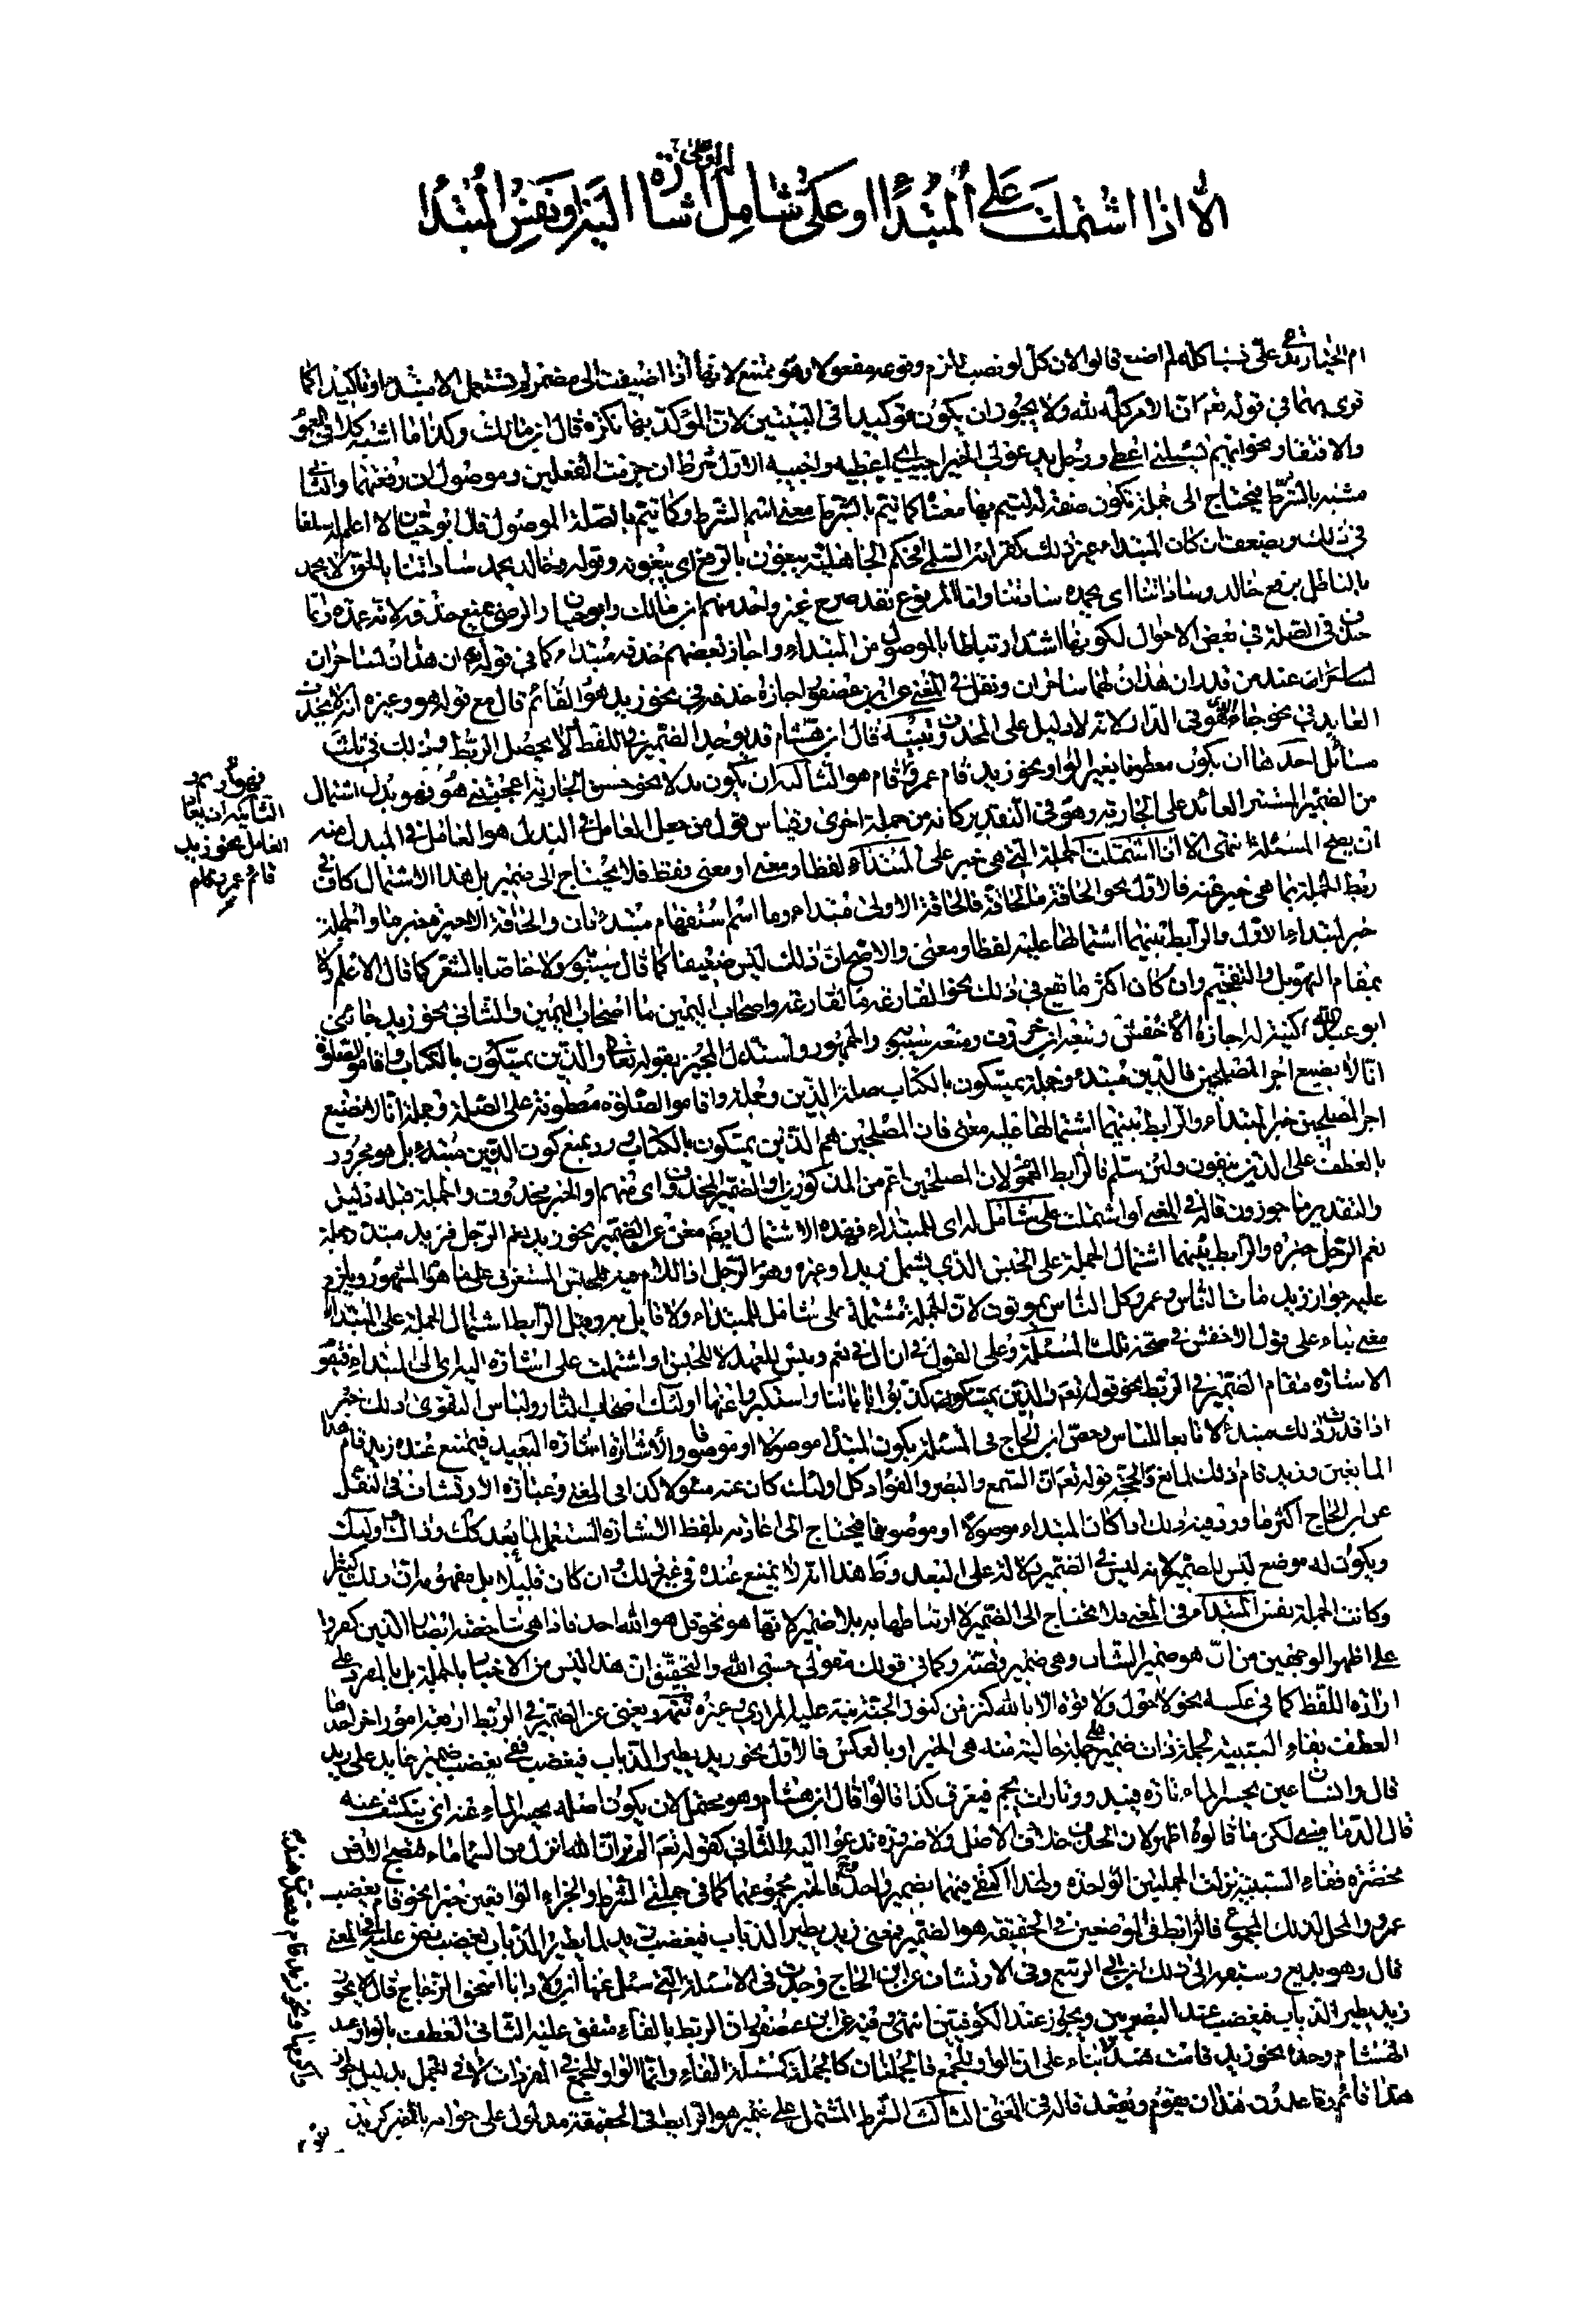 الا اذا اشتملت على المبتدأ او على شامل له او على اشارة اليه او نفس المبتدأ
ام الخيار تدعى علي ذنبا كله لم اصنع قالوا لان كل لو نصب لزم وقوعه مفعولا وهو ممتنع لانها اذا اضيفت الى مضمر لم تستعمل الا مبتدأ او تأكيدا كما
قرئ بهما في قوله تعالى ان الامر كله لله ولا يجوز ان يكون توكيدا في البيتين لان المؤكد بهما نكرة قال ابن مالك وكذا ما اشبه كلا في العموم
والافتقار نحو ايهم يسألني اعطي ورجل يدعو الى الخير اجيب اي اعطيه واجيبه الاول شرط ان جزمت الفعلين وموصول ان رفعتهما والثاني
مشبه بالشرط فيحتاج الى جملة تكون صفة له ليتم بها معناه كما يتم بالشرط معنى اسم الشرط وكما يتم بالصلة الموصول قال ابو حيان لا اعلم له سلفا
في ذلك ويضعف ان كان المبتداء غير ذلك كقراءة السلمي افحكم الجاهلية يبغون بالرفع اي يبغونه وقوله وخالد يحمد ساداتنا بالحق لا يحمد
بالباطل برفع خالد وساداتنا اي يحمده ساداتنا واما المرفوع فقد صرح غير واحد منهم ابن مالك وابو حيان والرضي بمنع حذفه لانه عمدة وانما
حذف في الصلة في بعض الاحوال لكونها اشد ارتباطا بالموصول من المبتداء واجاز بعضهم حذفه مبتداء كما في قوله تعالى ان هذان لساحران
لساحران عند من قدر ان هذان لهما ساحران ونقل في المغني عن ابن عصفور اجازة حذفه في نحو زيد هو القائم قال مع قوله هو وغيره انه لا يحذف
العايد في نحو جاء الذي هو في الدار لانه لا دليل على المحذوف تنبيه قال ابن هشام قد يوجد الضمير في اللفظ ولا يحصل الربط وذلك في ثلث
مسائل احدها ان يكون معطوفا بغير الواو نحو زيد قام عمرو ثم قام هو الثانية ان يكون بدلا نحو حسن الجارية اعجبتني هو فهو بدل اشتمال
من الضمير المستتر العائد على الجارية وهو في التقدير كانه من جملة اخرى وقياس قول من جعل العامل في البدل هو العامل في المبدل منه
ان يصح المسئلة انتهى الا ان اشتملت الجملة التي هي خبر على المبتداء لفظا ومعنى او معنى فقط فلا يحتاج الى ضمير بل هذا الاشتمال كاف في
ربط الجملة بما هي خبر عنه فالاول نحو الحاقة ما الحاقة فالحاقة الاولى مبتداء وما اسم استفهام مبتدء ثان والحاقة الاخيرة خبر ما والجملة
خبر المبتداء الاول والرابط بينهما اشتمالها عليه لفظا ومعنى والاصح ان ذلك ليس ضعيفا كما قال سيبويه ولا خاصا بالشعر كما قال الاعلم ولا
بمقام التهويل والتفخيم وان كان اكثر ما تقع في ذلك نحو القارعة ما القارعة واصحاب اليمين ما اصحاب اليمين والثاني نحو زيد جاءني
ابو عبد الله كنية له اجازه الاخفش وتبعه ابن خروف ومنعه سيبويه والجمهور واستدل المجيز بقوله تعالى والذين يمسكون بالكتاب واقاموا الصلوة
انا لا نضيع اجر المصلحين فالذين مبتدء وجملة يمسكون بالكتاب صلة الذين وجملة واقاموا الصلوة معطوفة على الصلة وجملة انا لا نضيع
اجر المصلحين خبر المبتداء والرابط بينهما اشتمالها عليه معنى فان المصلحين هم الذين يمسكون بالكتاب ورد بمنع كون الذين مبتدء بل هو مجرور
بالعطف على الذين يتقون ولئن سلم فالرابط العموم لان المصلحين اعم من المذكورين او الضمير المحذوف اي منهم او الخبر محذوف والجملة قبله دليل
والتقدير ماجورون قاله في المغني او اشتملت على شامل له اي للمبتداء فهذه الاشتمال ايضا مغن عن الضمير نحو زيد نعم الرجل فزيد مبتدء وجملة
نعم الرجل خبره والرابط بينهما اشتمال الجملة على الجنس الذي يشمل زيدا وغيره وهو الرجل اذ اللام فيه للجنس المستغرق على ما هو المشهور ويلزم
عليه جواز زيد مات الناس وعمرو كل الناس يموتون لان الجملة مشتملة على شامل للمبتداء ولا قايل به وقيل الرابط اشتمال الجملة على المبتداء
معنى بناء على قول الاخفش في صحة تلك المسئلة وعلى القول في ان ال في نعم وبئس للعهد لا للجنس او اشتملت على اشارة اليه اي الى المبتداء فتقوم
الاشارة مقام الضمير في الربط نحو قوله تعالى والذين كذبوا باياتنا واستكبروا عنها اولئك اصحاب النار ولباس التقوى ذلك خير
اذا قدر ذلك مبتدء لا تابعا للباس وخص ابن الحاج في المسئلة بكون المبتدأ موصولا او موصوفا والاشارة اشارة البعيد فيمتنع عنده زيد قام هذا
المانعين وزيد قام ذلك لمانع والحجة قوله تعالى ان السمع والبصر والفؤاد كل اولئك كان عنه مسئولا كذا في المغني وعبارة الارتشاف في النقل
عن ابن الحاج اكثر ما ورد فيه ذلك اذا كان المبتداء موصولا او موصوفا فيحتاج الى اعادته بلفظ الاشارة المستعمل لما بعد كتلك وذاك واولئك
ويكون له موضع ليس للضمير لانه ليس في الضمير دلالة على البعد وظاهر هذا انه لا يمتنع عنده في غير ذلك وان كان قليلا بل مفهومه ان ذلك كثير
وكانت الجملة نفس المبتداء في المعنى فلا يحتاج الى الضمير لارتباطها به بلا ضمير لانها هو نحو قل هو الله احد فاذا هي شاخصة ابصار الذين كفروا
على اظهر الوجهين من ان هو ضمير الشان وهي ضمير قصة وكما في قولك مقولي حسبي الله والتحقيق ان هذا ليس من الاخبار بالجملة بل بالمفرد على
ارادة اللفظ كما في عكسه نحو لا حول ولا قوة الا بالله كنز من كنوز الجنة نبه عليه المرادي وغيره تتمة ويغني عن الضمير في الربط اربعة امور اخر احدها
العطف بفاء السببية لجملة ذات ضمير على جملة خالية منه هي الخبر او بالعكس فالاول نحو زيد يطير الذباب فيغضب ففي يغضب ضمير عايد على زيد
قال وانسان عيني يحسر الماء تارة فيبدو وتارات يجم فيغرق كذا قالوا قال ابن هشام وهو محتمل لان يكون اصله يحسر الماء عنه اي ينكشف عنه
قال الدماميني لكن ما قالوه اظهر لان الحذف خلاف الاصل ولا ضرورة تدعوا اليه والثاني كقوله تعالى الم تر ان الله انزل من السماء ماء فتصبح الارض
مخضرة ففاء السببية نزلت الجملتين الواحدة ولهذا اكتفي فيهما بضمير واحد فالخبر مجموعهما كما في جملتي الشرط والجزاء الواقعتين خبرا نحو قام يغضب
عمرو والمحل لذلك المجموع فالرابط في الموضعين في الحقيقة هو الضمير فمعنى زيد يطير الذباب فيغضب زيد لما يطير الذباب يغضب نص عليه في المغني
قال وهو بديع وسبقه الى ذلك ابن ابي الربيع وفي الارتشاف عن ابن الحاج وجدت في الاسئلة التي سئل عنها ابن ولاد ابا اسحق الزجاج قال لا يجوز
زيد يطير الذباب فيغضب عند البصريين ويجوز عند الكوفيين انتهى وفيه عن ابن عصفور ان الربط بالفاء متفق عليه الثاني العطف بالواو عند
ابن هشام وحده نحو زيد قامت هند بناء على ان الواو للجمع فالجملتان كالجملة كمسئلة الفاء وانما الواو للجمع في المفردات لا في الجمل بدليل جواز
هذان قائم وقاعد دون هذان يقوم ويقعد قاله في المغني الثالث الشرط المشتمل على ضمير هو الرابط في الحقيقة مدلول على جوابه بالخبر كزيد
التأكيد ان يعاد
العامل نحو زيد
قام عمرو وقام
هو